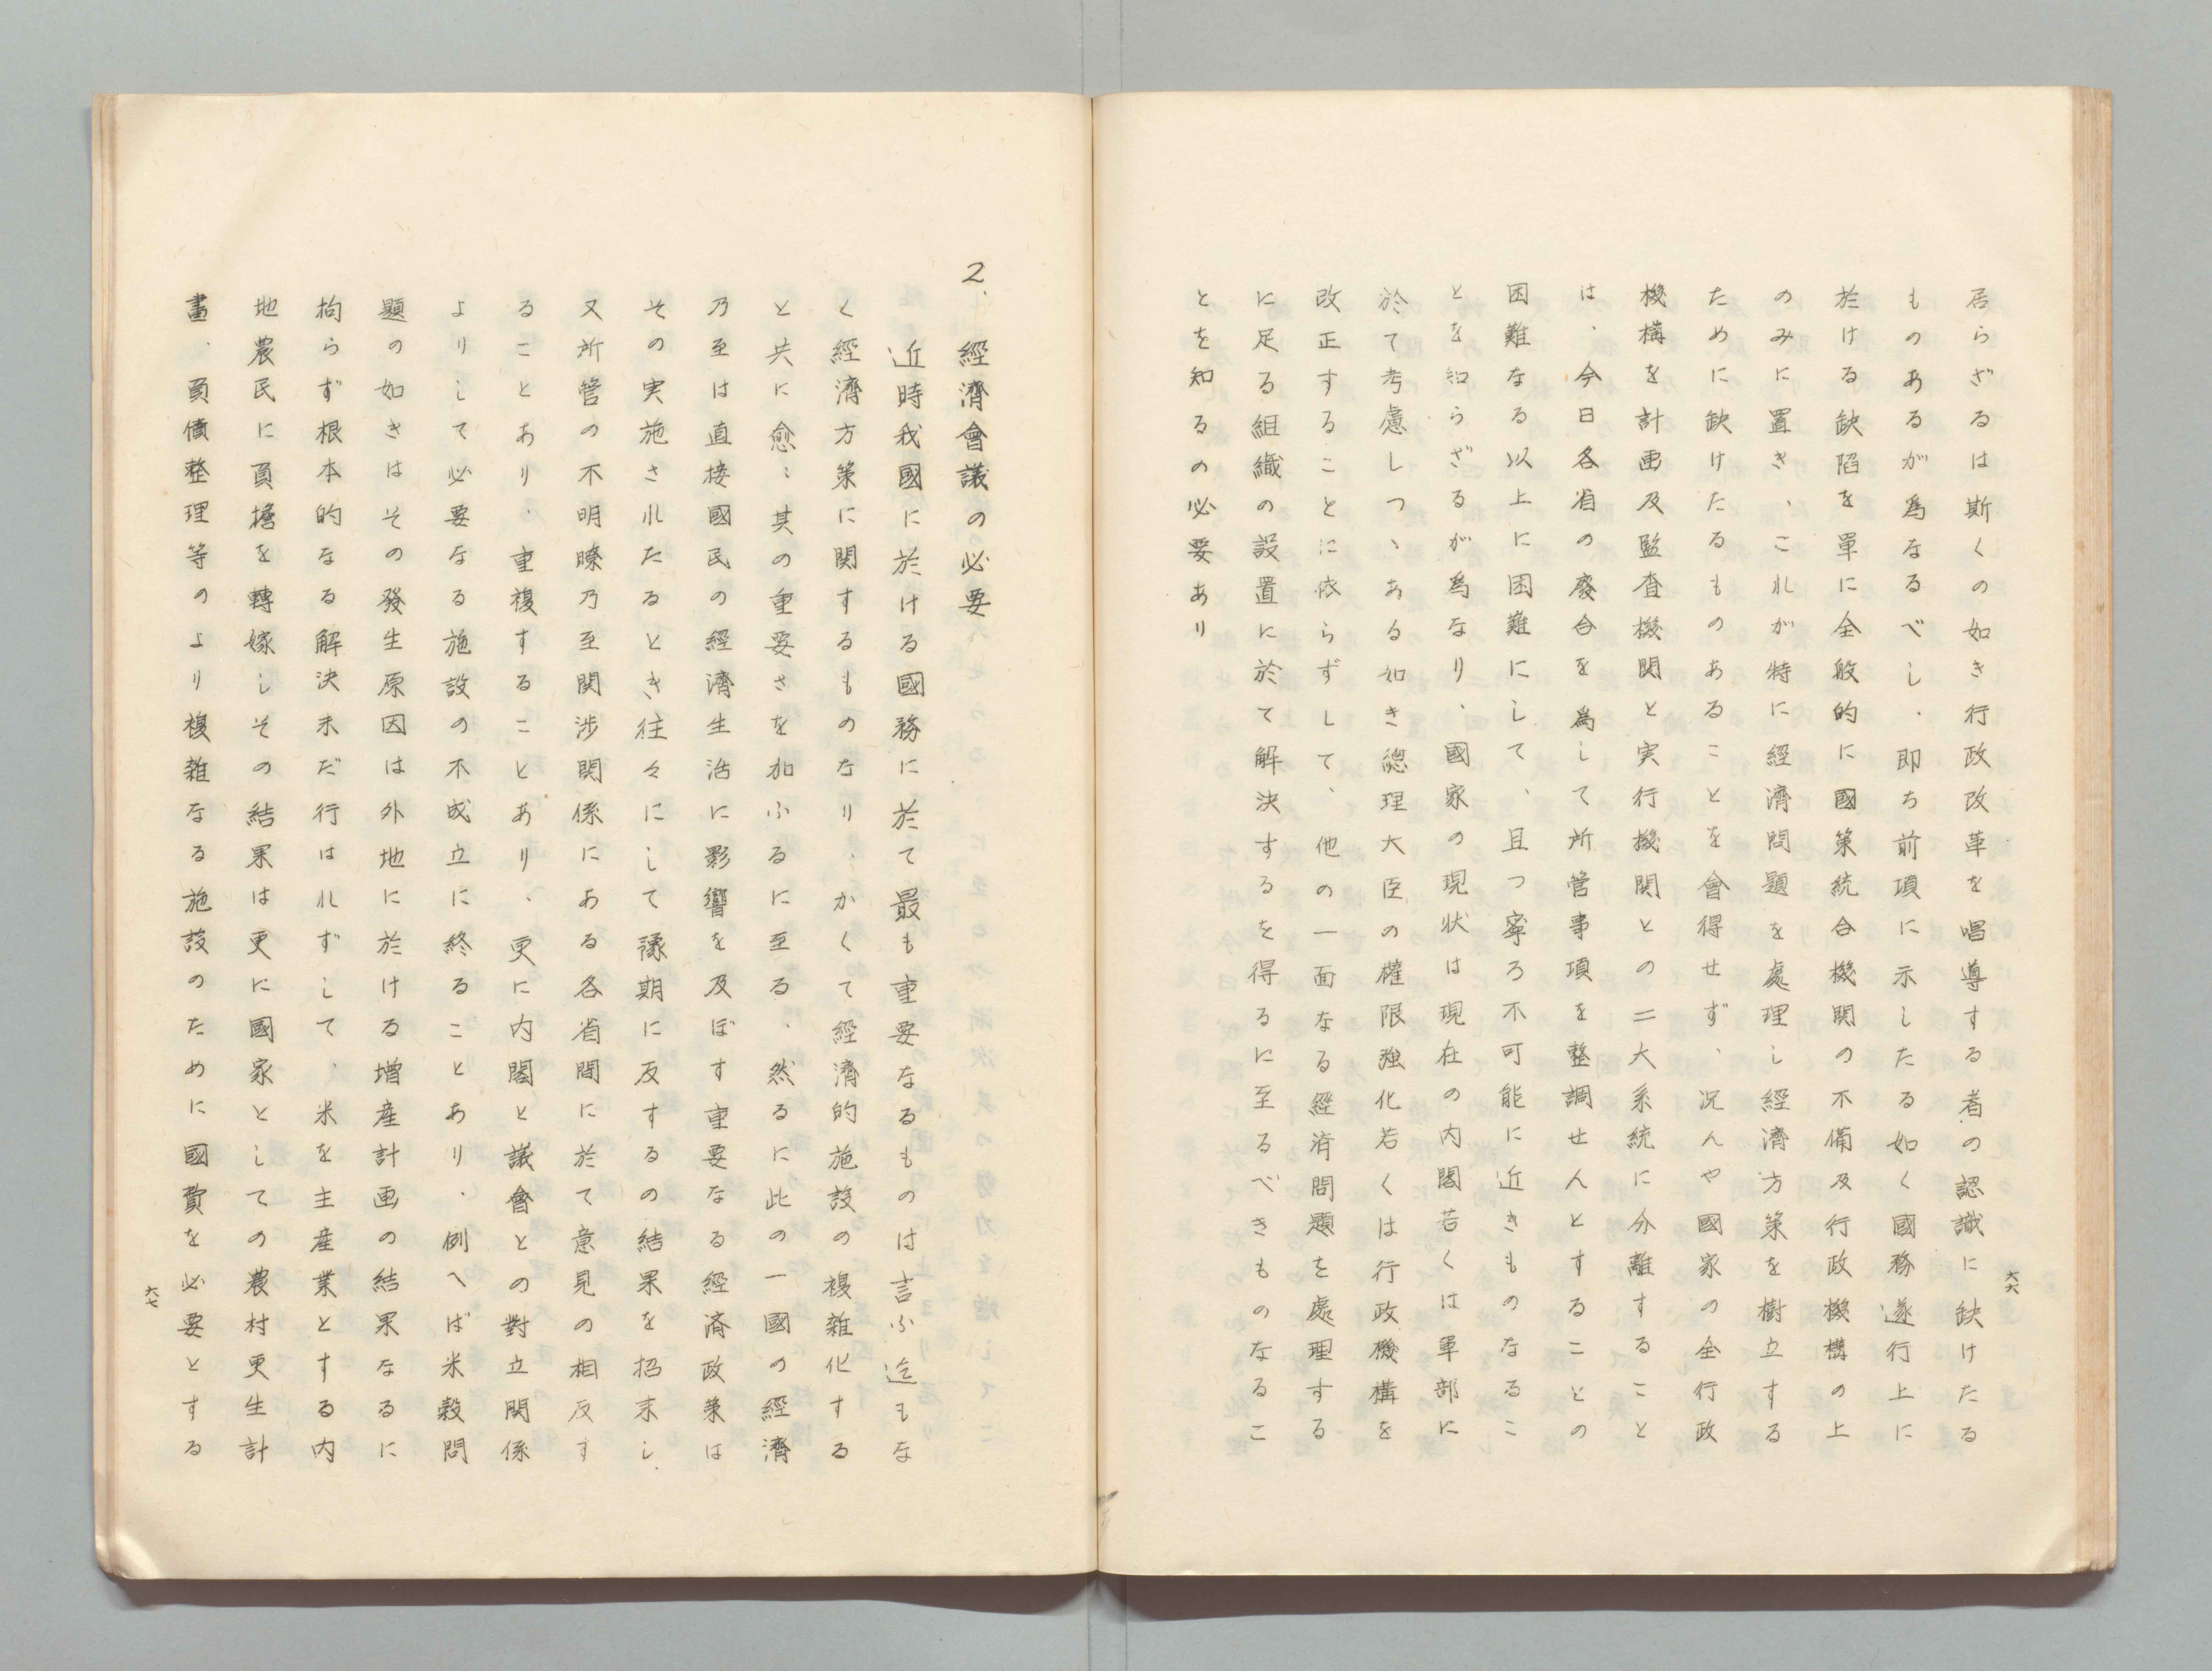 居らざるは斯くの如き行政改革を唱導する者の認識に缺けたる
ものあるが爲なるべし、即ち前項に示したる如く國務遂行上に
於ける缺陷を單に全般的に國策統合機関の不備及行政機構の上
のみに置き、これが特に經濟問題を處理し經濟方策を樹立する
ために缺けたるものあることを會得せず、況んや國家の全行政
機構を計画及監査機関と実行機関との二大系統に分離すること
は、今日各省の廢合を爲して所管事項を整調せんとすることの
困難なる以上に困難にして、且つ寧ろ不可能に近きものなるこ
とを知らざるが爲なり、國家の現状は現在の内閣若くは軍部に
於て考慮しつゝある如き總理大臣の權限強化若くは行政機構を
改正することに依らずして、他の一面なる經済問題を處理する
に足る組織の設置に於て解決するを得るに至るべきものなるこ
とを知るの必要あり
六六
2、經濟會議の必要
近時我國に於ける國務に於て最も重要なるものは言ふ迄もな
く經濟方策に関するものなり、かくて經濟的施設の複雜化する
と共に愈〻其の重要さを加ふるに至る、然るに此の一國の經濟
乃至は直接國民の經濟生活に影響を及ぼす重要なる經済政策は
その実施されたるとき往々にして豫期に反するの結果を招来し、
又所管の不明瞭乃至関渉関係にある各省間に於て意見の相反す
ることあり、重複することあり、更に内閣と議會との對立関係
よりして必要なる施設の不成立に終ることあり、例へば米穀問
題の如きはその發生原因は外地に於ける增産計画の結果なるに
拘らず根本的なる解決未だ行はれずして、米を主産業とする内
地農民に負擔を轉嫁しその結果は更に國家としての農村更生計
畫、負債整理等のより複雜なる施設のために國費を必要とする
六七